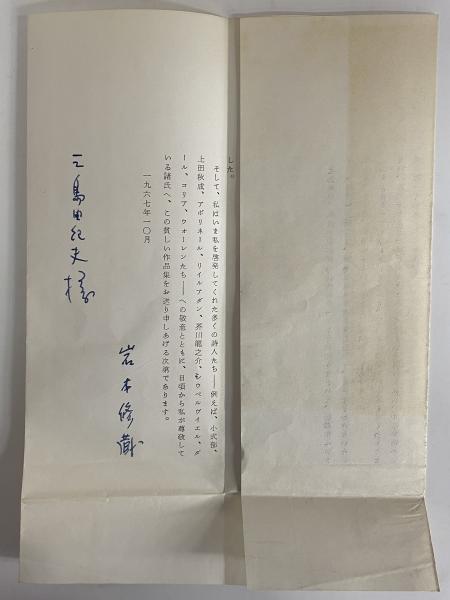 した。
そして、私はいま私を啓発してくれた多くの詩人たち――例えば、小式部、
上田秋成、アポリネール、リイルアダン、芥川龍之介、シウペルヴィエル、ダ
ール、コリア、ウォーレンたち――への敬意とともに、日頃から私が尊敬して
いる諸氏へ、この貧しい作品集をお送り申しあげる次第であります。
一九六七年一〇月
岩本修蔵
三島由紀夫様